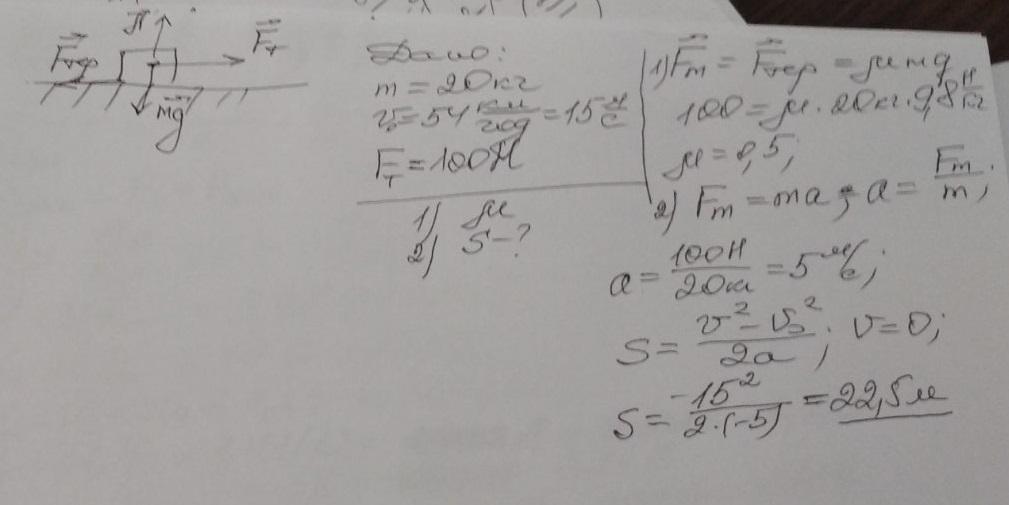 N
Fтр
Fт
mg
Дано:
m = 20кг
v₀ = 54 км/год = 15 м/с
Fт = 100Н
1) μ
2) S – ?
1) Fт = Fтер = μmg
100 = μ · 20кг · 9,8 Н/кг
μ = 0,5;
2) Fт = ma; a = Fт/m;
a = 100Н/20кг = 5 м/с;
S = (v² – v₀²)/2a; v = 0;
S = –15²/2·(–5) = 22,5м